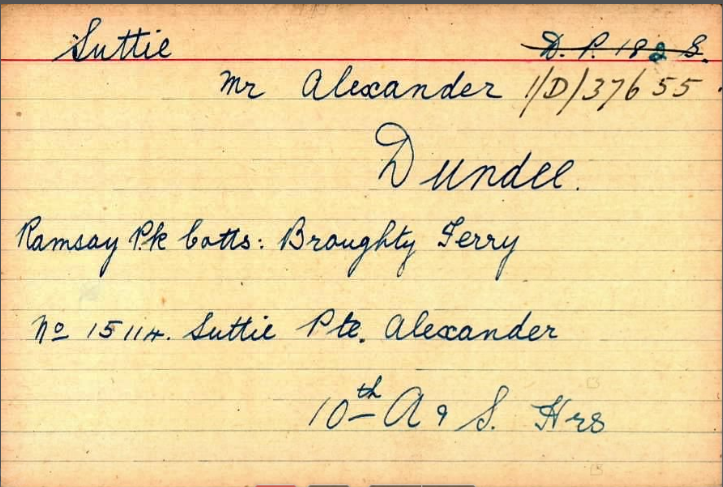 Suttie D. P. 182 S.
Mr Alexander 1/D/37655
Dundee.
Ramsay Pk Cotts: Broughty Ferry
No 15114. Suttie Pte. Alexander
10th A & S. Hrs